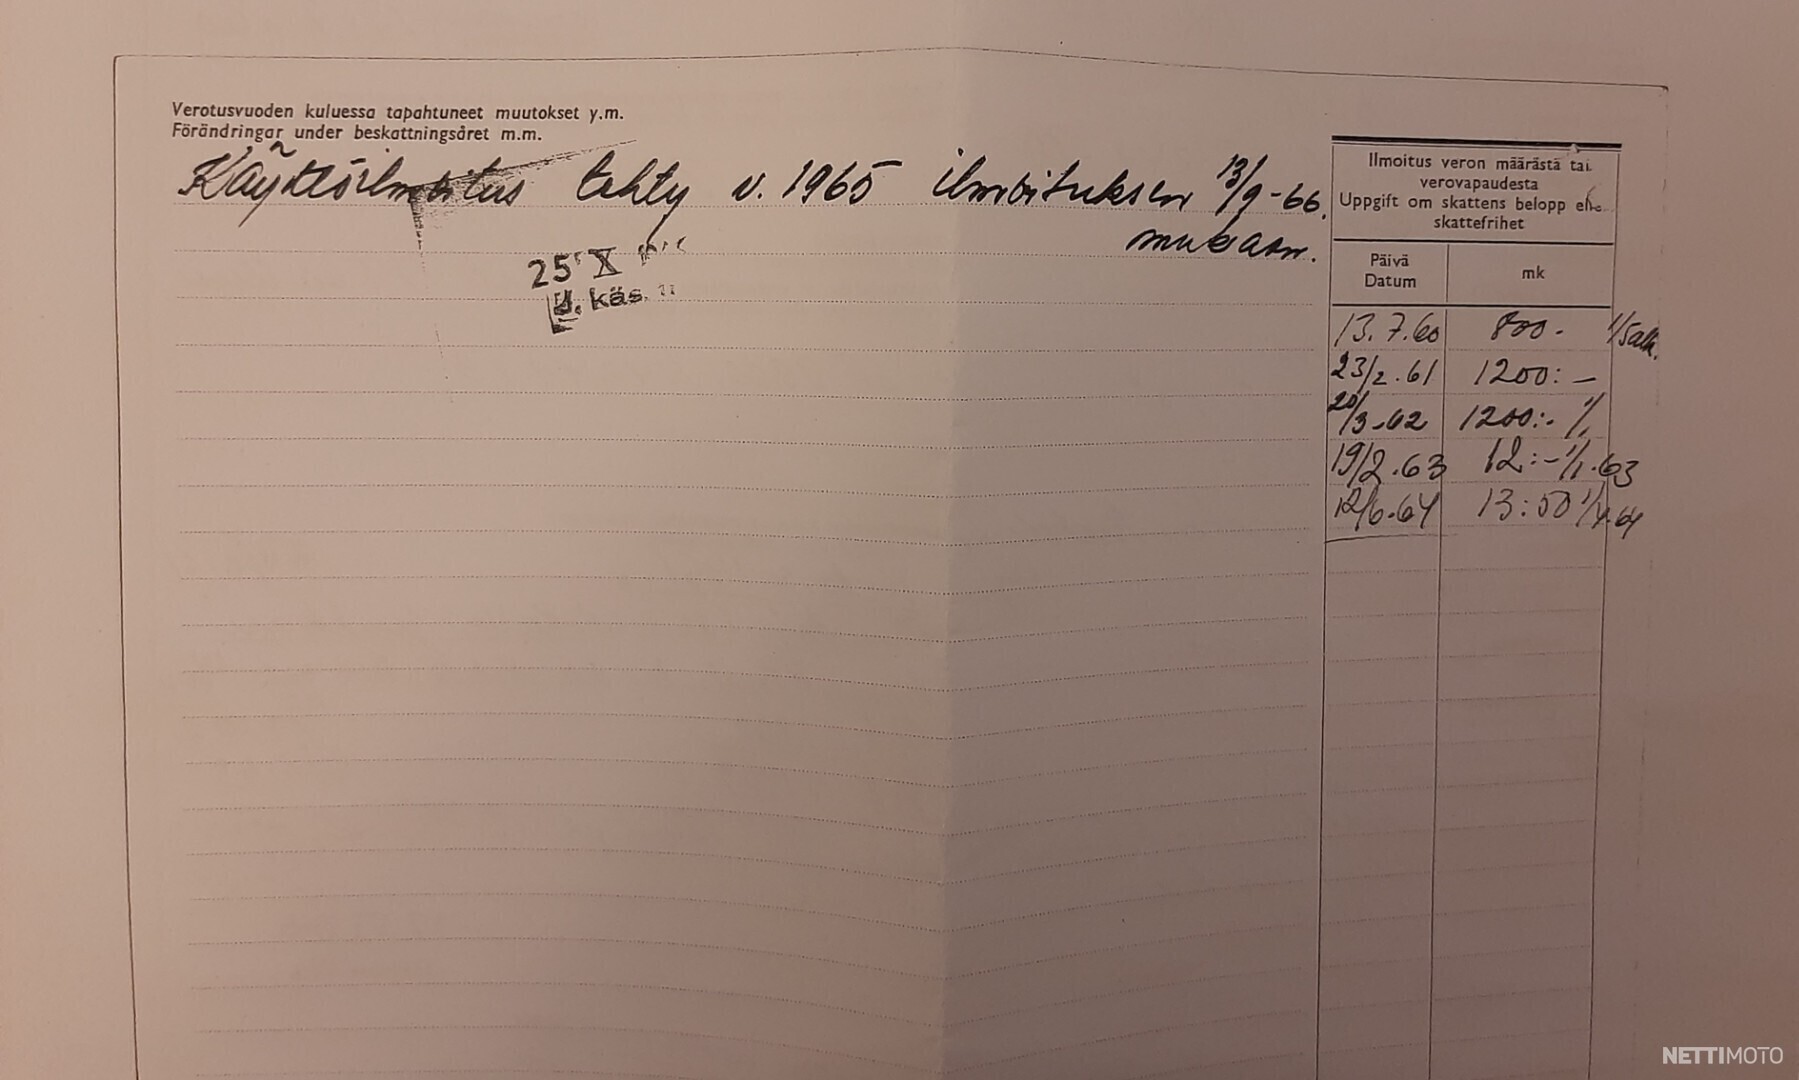 Verotusvuoden kuluessa tapahtuneet muutokset y.m.
Förändringar under beskattningsåret m.m.
Käyttöilmoitus tehty v. 1965 ilmoituksen 13/9-66.
mukaan.
25 X
käs.
Ilmoitus veron määrästä tai
verovapaudesta
Uppgift om skattens belopp
skattefrihet
Päivä mk
Datum
13.7.60 800.-
23/2.61 1200:-
20/3-62 1200:-
19/2.63 12:- 1/1.63
12/6.64 13:50 1/4.64
NETTIMOTO